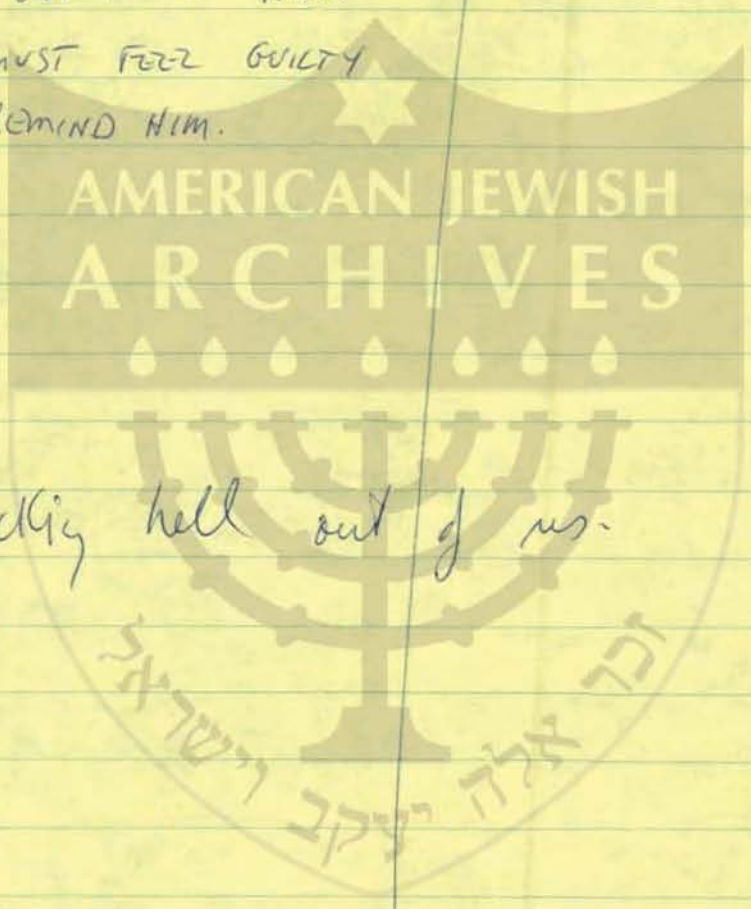 MUST FEEL GUILTY
REMIND HIM.
AMERICAN JEWISH
ARCHIVES
hell out of us.
זכר אלה יעקב וישראל